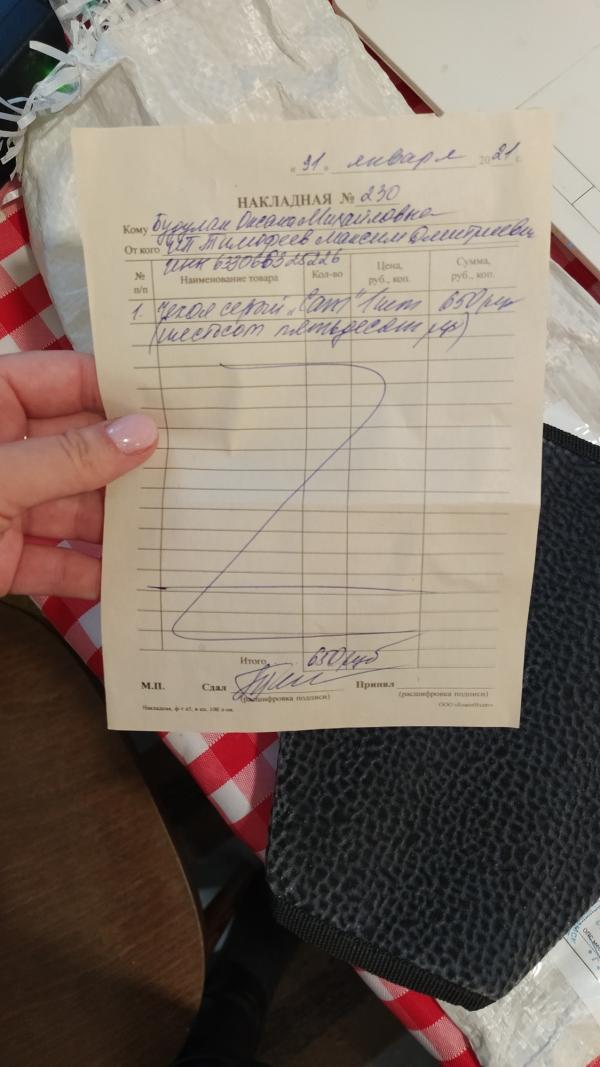 « 31 » января 2021 г.
НАКЛАДНАЯ № 230
Кому Бузулан Оксана Михайловна
От кого ИП Тимофеев Максим Дмитриевич
ИНН 633066325226
№ п/п Наименование товара Кол-во Цена, руб., коп. Сумма, руб., коп.
1. Чехол серый „ " 1 шт 650 руб
(шестьсот пятьдесят руб)
Итого 650 руб
М.П. Сдал Принял
(расшифровка подписи) (расшифровка подписи)
Накладная, ф-т а5, в кн. 100 л-ов.